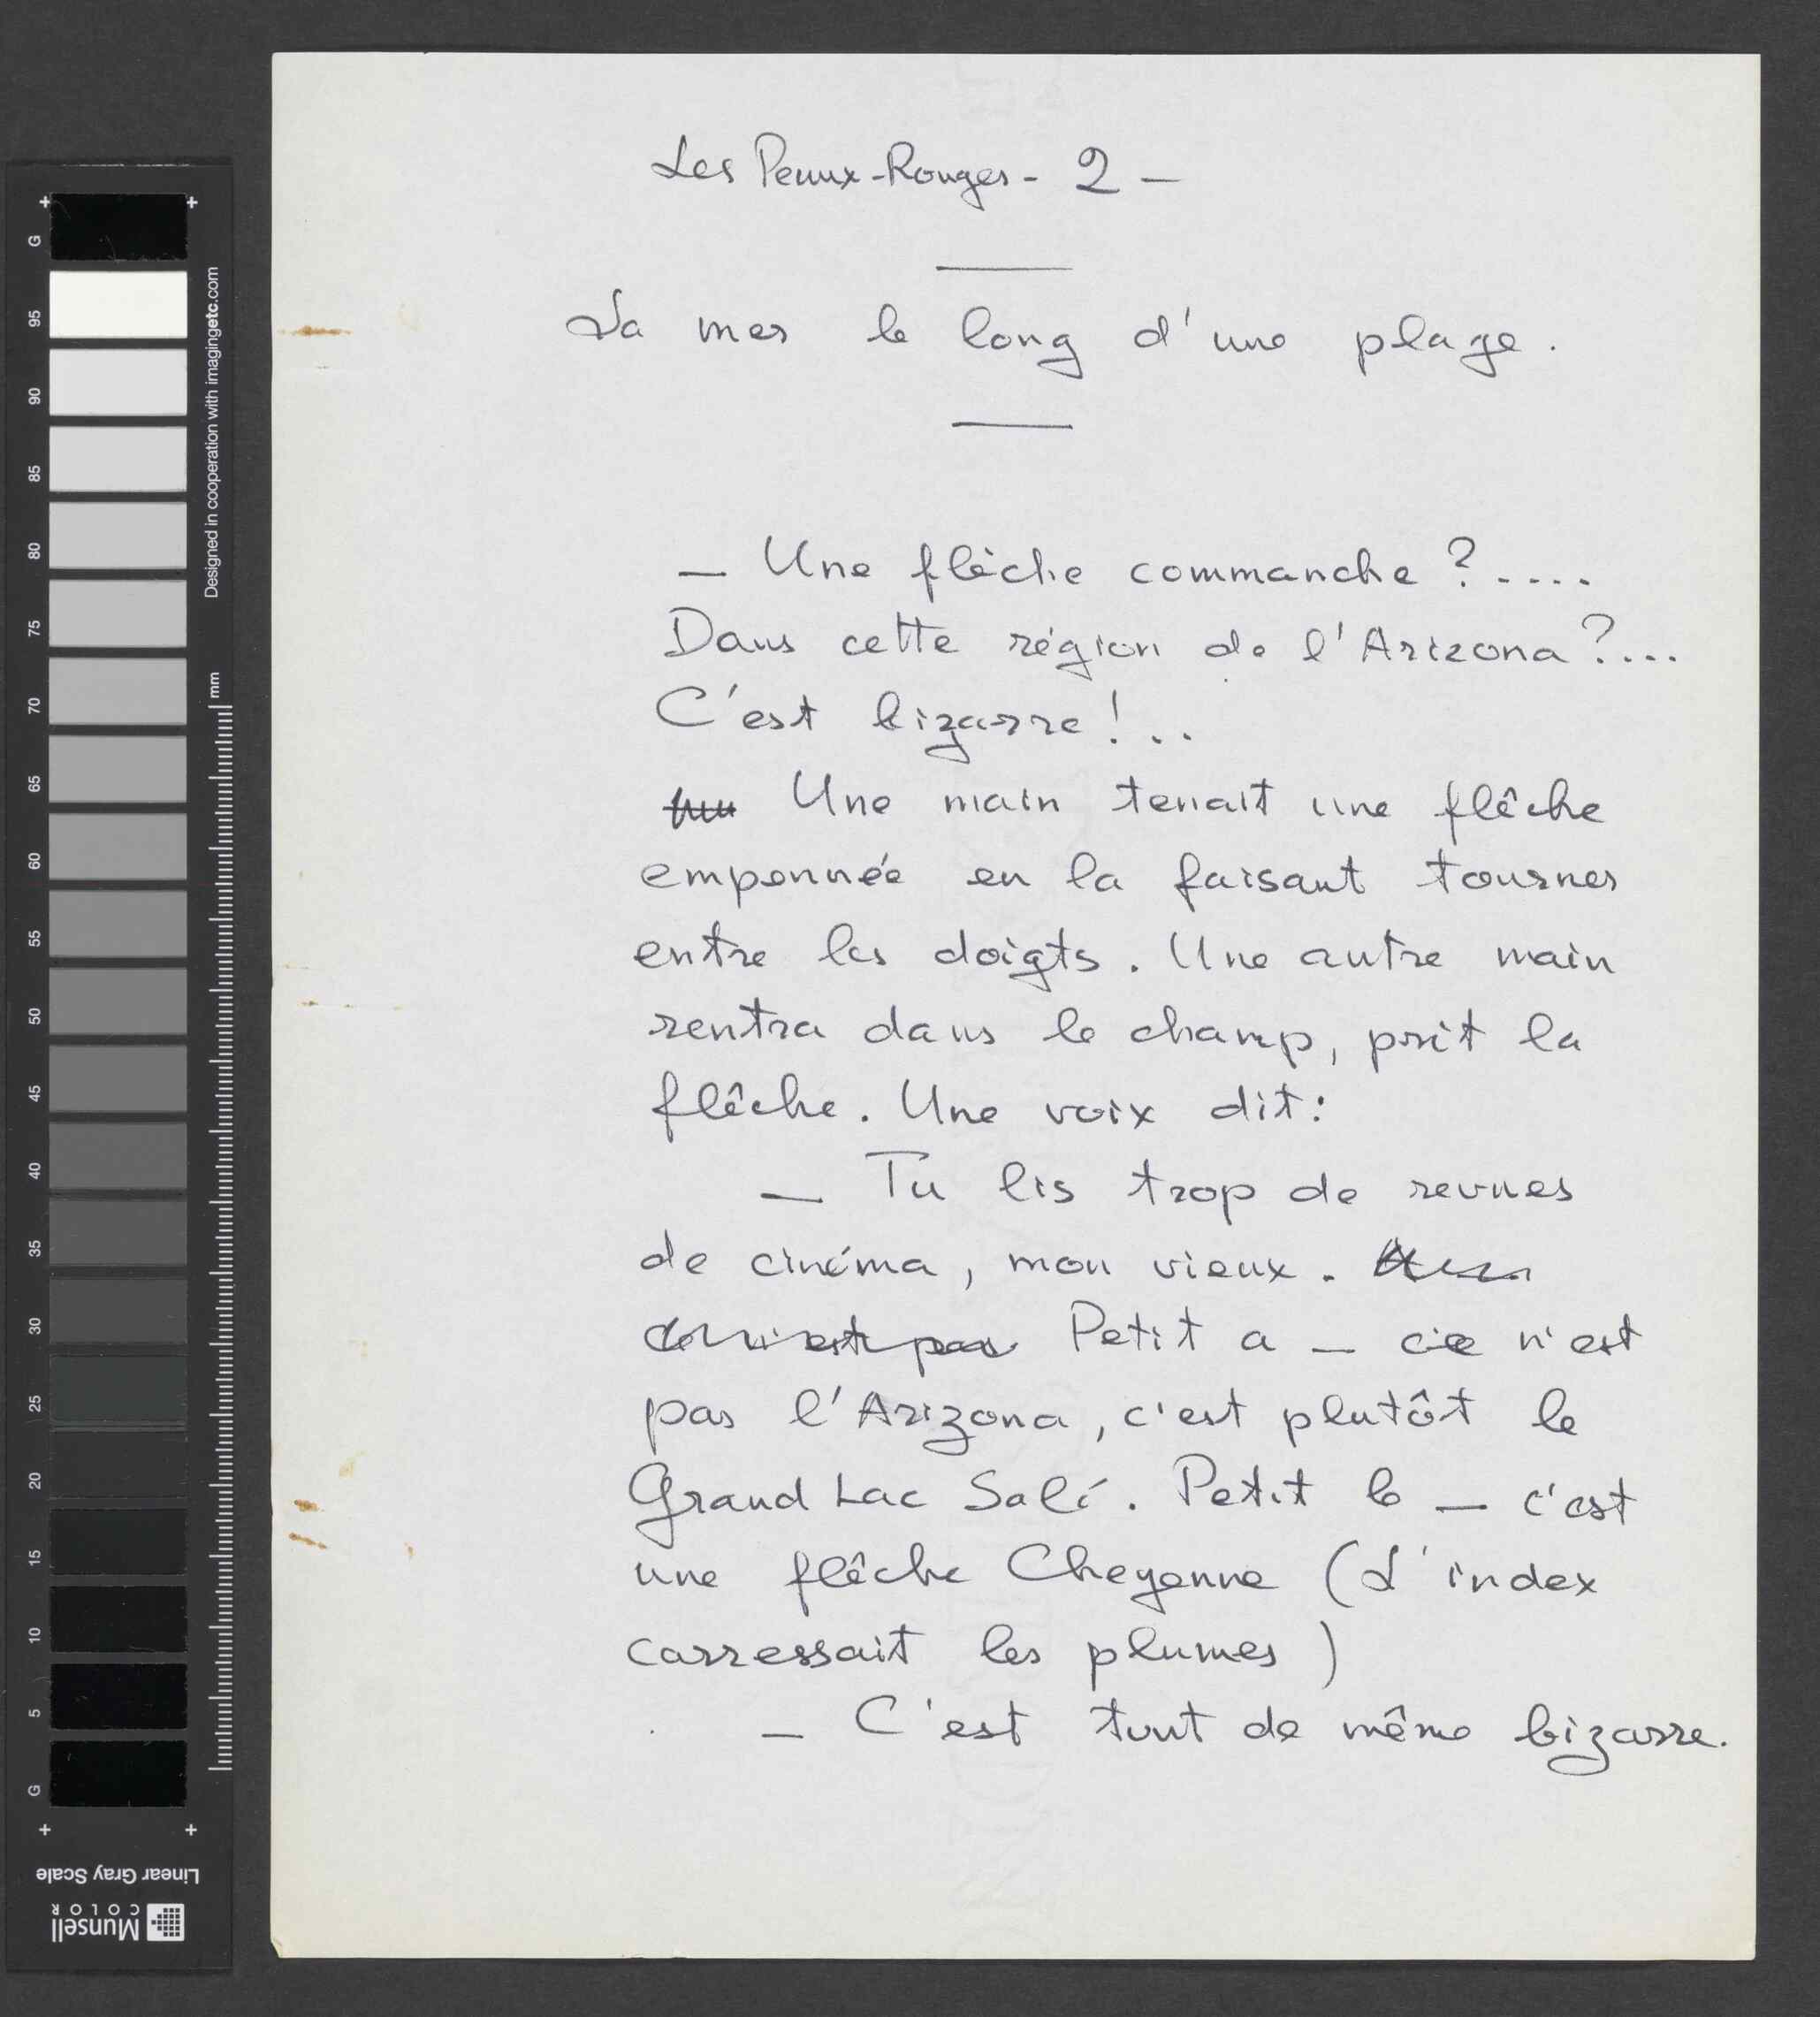 Les Peaux-Rouges - 2 -
La mer le long d'une plage.
— Une flèche commanche ?.....
Dans cette région de l'Arizona ?....
C'est bizarre !..
Une main tenait une flêche
empennée en la faisant tourner
entre les doigts. Une autre main
rentra dans le champ, prit la
flêche. Une voix dit :
— Tu lis trop de revues
de cinéma, mon vieux.
Petit a — ce n'est
pas l'Arizona, c'est plutôt le
Grand Lac Salé. Petit b — c'est
une flêche Cheyenne (L'index
carressait les plumes)
— C'est tout de même bizarre.
G
95
90
85
80
75
70
65
60
55
50
45
40
35
30
25
20
15
10
5
G
Designed in cooperation with imagingetc.com
mm
Linear Gray Scale
Munsell
COLOR